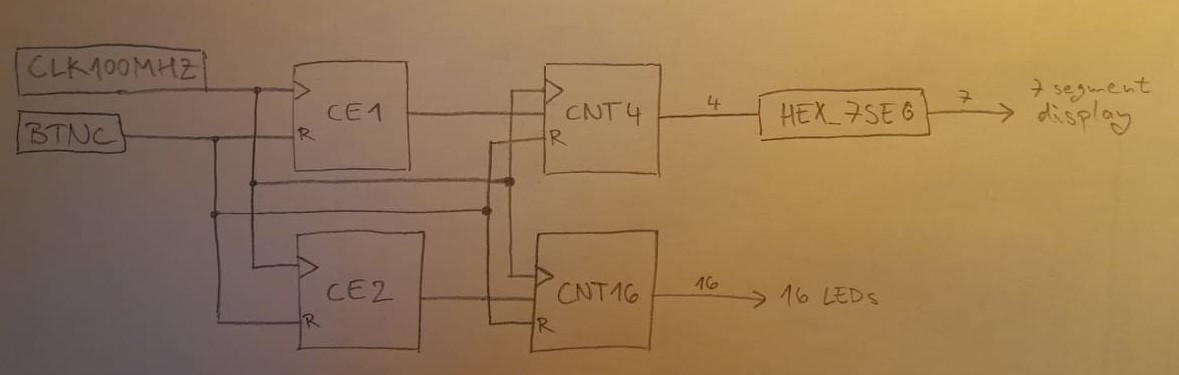 CLK100MHZ
BTNC
CE1
R
CNT4
R
4
HEX_7SEG
7
7 segment
display
CE2
R
CNT16
R
16
16 LEDs